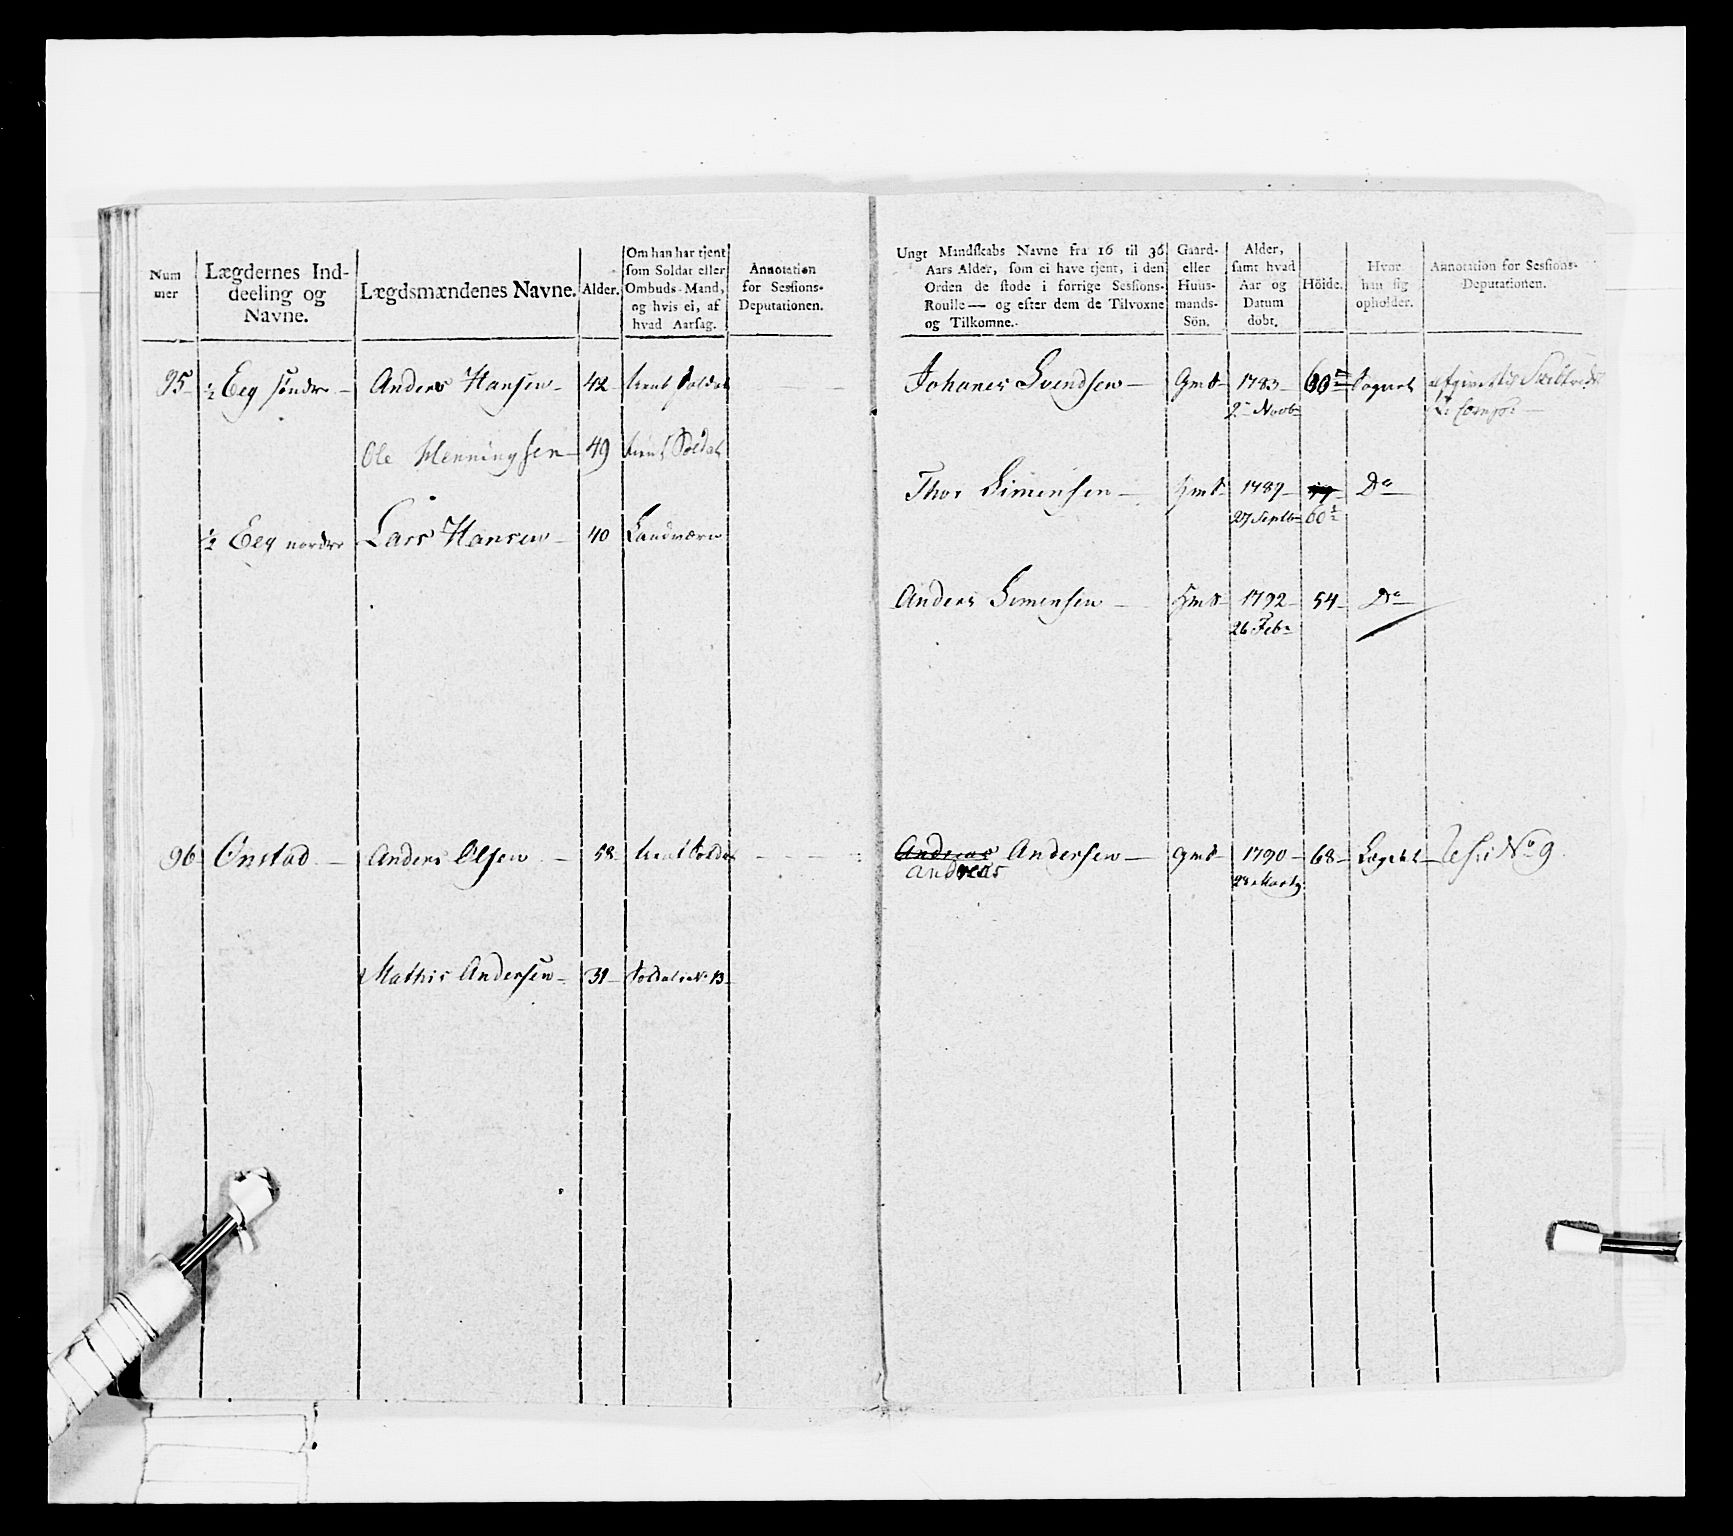 Num
mer
Lægdernes Ind-
deeling og
Navne.
Lægdsmændenes Navne.
Alder.
Om han har tjent
som Soldat eller
Ombuds-Mand,
og hvis ei, af
hvad Aarsag.
Annotation
for Sessions-
Deputationen.
Ungt Mandskabs Navne fra 16 til 36
Aars Alder, som ei have tjent, i den
Orden de stode i forrige Sessions-
Roulle — og efter dem de Tilvoxne
og Tilkomne.
Gaard-
eller
Huus-
mands-
Sön.
Alder,
samt hvad
Aar og
Datum
döbt.
Höide.
Hvor
han sig
opholder.
Annotation for Sessions-
Deputationen.
95 ½ Eeg söndre — Anders Hansen — 42 tient Soldat Johanes Svendsen — GmS 1783 — Sognet
2 Novb
Ole Henningsen — 49 tient Soldat
Thor Simensen — HmS 1787 — Do
27 Septb 60
½ Eeg nordre Lars Hansen — 40 Landværn
Anders Simensen — HmS 1792 — 54 — Do
26 Feb
96 Onstad — Anders Olsen — 58 tient Soldat Andreas Andersen — GmS 1790 — 68 — Lægdet — No 9
Andreas
28 Marty
Mathis Andersen — 31 — Soldat i No 13